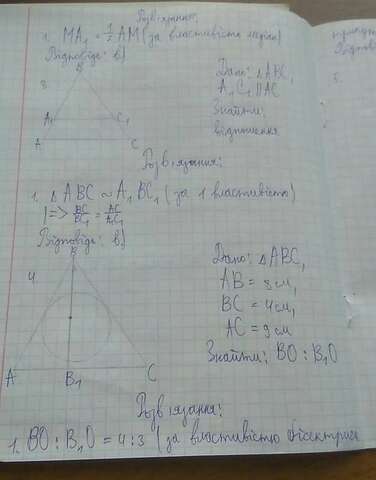 Розв'язання:
1. MA₁ = 1/2 AM (за властивістю медіан)
Відповідь: в)
B
8
A₁ C₁
A C
Дано: △ABC,
A₁C₁ || AC
Знайти:
відношення
Розв'язання:
1. △ABC ~ A₁BC₁ (за 1 властивістю)
1=> BC/BC₁ = AC/A₁C₁
Відповідь: в)
B
4
A B₁ C
Дано: △ABC,
AB = 8 см,
BC = 4 см,
AC = 9 см
Знайти: BO : B₁O
Розв'язання:
1. BO : B₁O = 4:3 (за властивістю бісектриси
Відпов